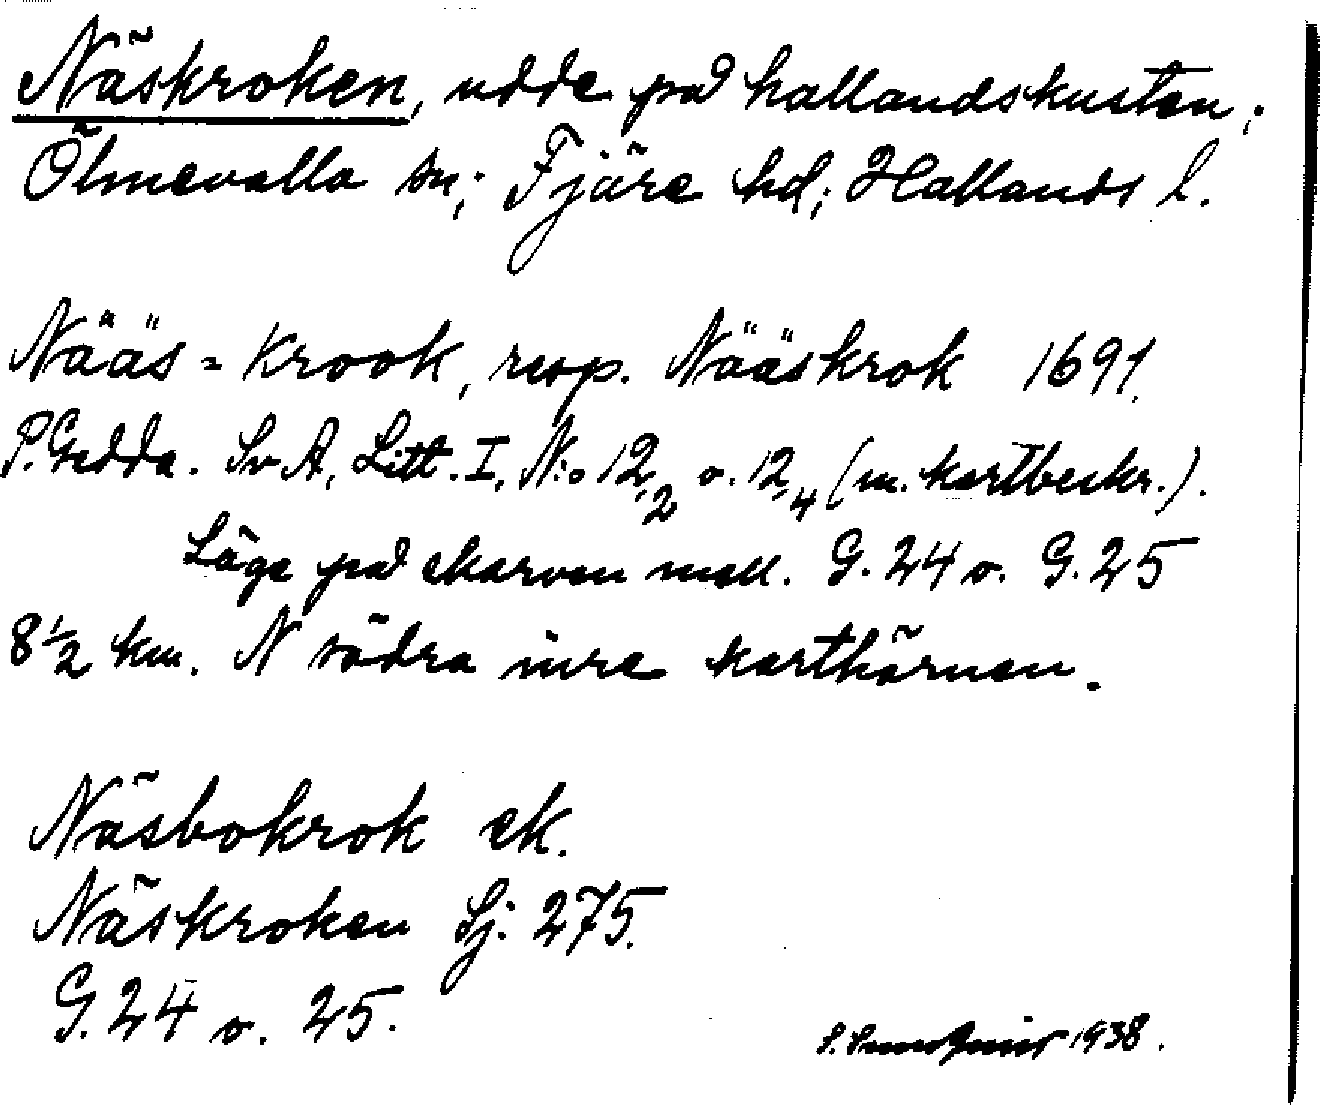 Näskroken, udde på hallandskusten;
Ölmevalla sn; Fjäre hd; Hallands l.
Nääs-Krook, resp. Nääskrok 1691.
P. Gedda. Sv A, Litt. I, N:o 12,2 o. 12,4 (m. kartbeskr.).
Läge på skarven mell. G. 24 o. G. 25
8 1/2 km. N södra inre karthörnen.
Näsbokrok ek.
Näskroken Sj: 275.
G. 24 o. 25.
1938.